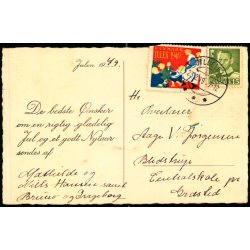 Julen 1949.
JULEN 1949
De bedste Ønsker
om en rigtig glædelig
Jul og et godt Nytaar
sendes af
Mathilde og
Niels Hansen samt
Bruno og Ingeborg
Hr.
Overlærer
Aage V. Jørgensen
Centralskole pr
Græsted